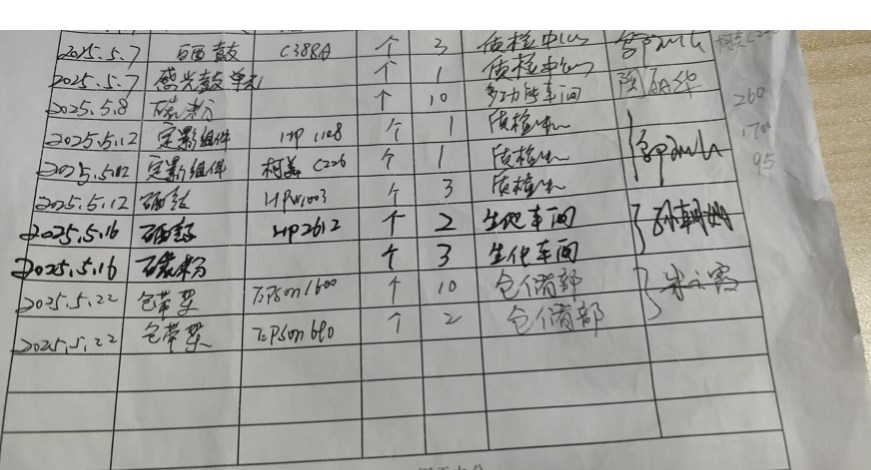 2025.5.7 硒鼓 C388A 个 3 质检中心
2025.5.7 感光鼓单元 个 1 质检中心
2025.5.8 碳粉 个 10 多功能车间
2025.5.12 定影组件 HP 1108 个 1 质检中心 260
2025.5.12 定影组件 柯美 C226 个 1 质检中心 170
2025.5.12 硒鼓 HPW1003 个 3 质检中心 95
2025.5.16 硒鼓 HP2612 个 2 生化车间
2025.5.16 碳粉 个 3 生化车间
2025.5.22 色带架 Epson1600 个 10 仓储部
2025.5.22 色带架 Epson 690 个 2 仓储部